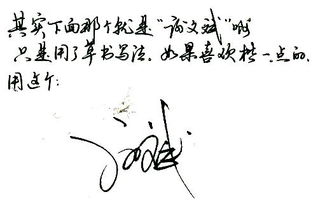 其实下面那个就是“高文斌”啊
只是用了草书写法.如果喜欢楷一点的.
用这个: